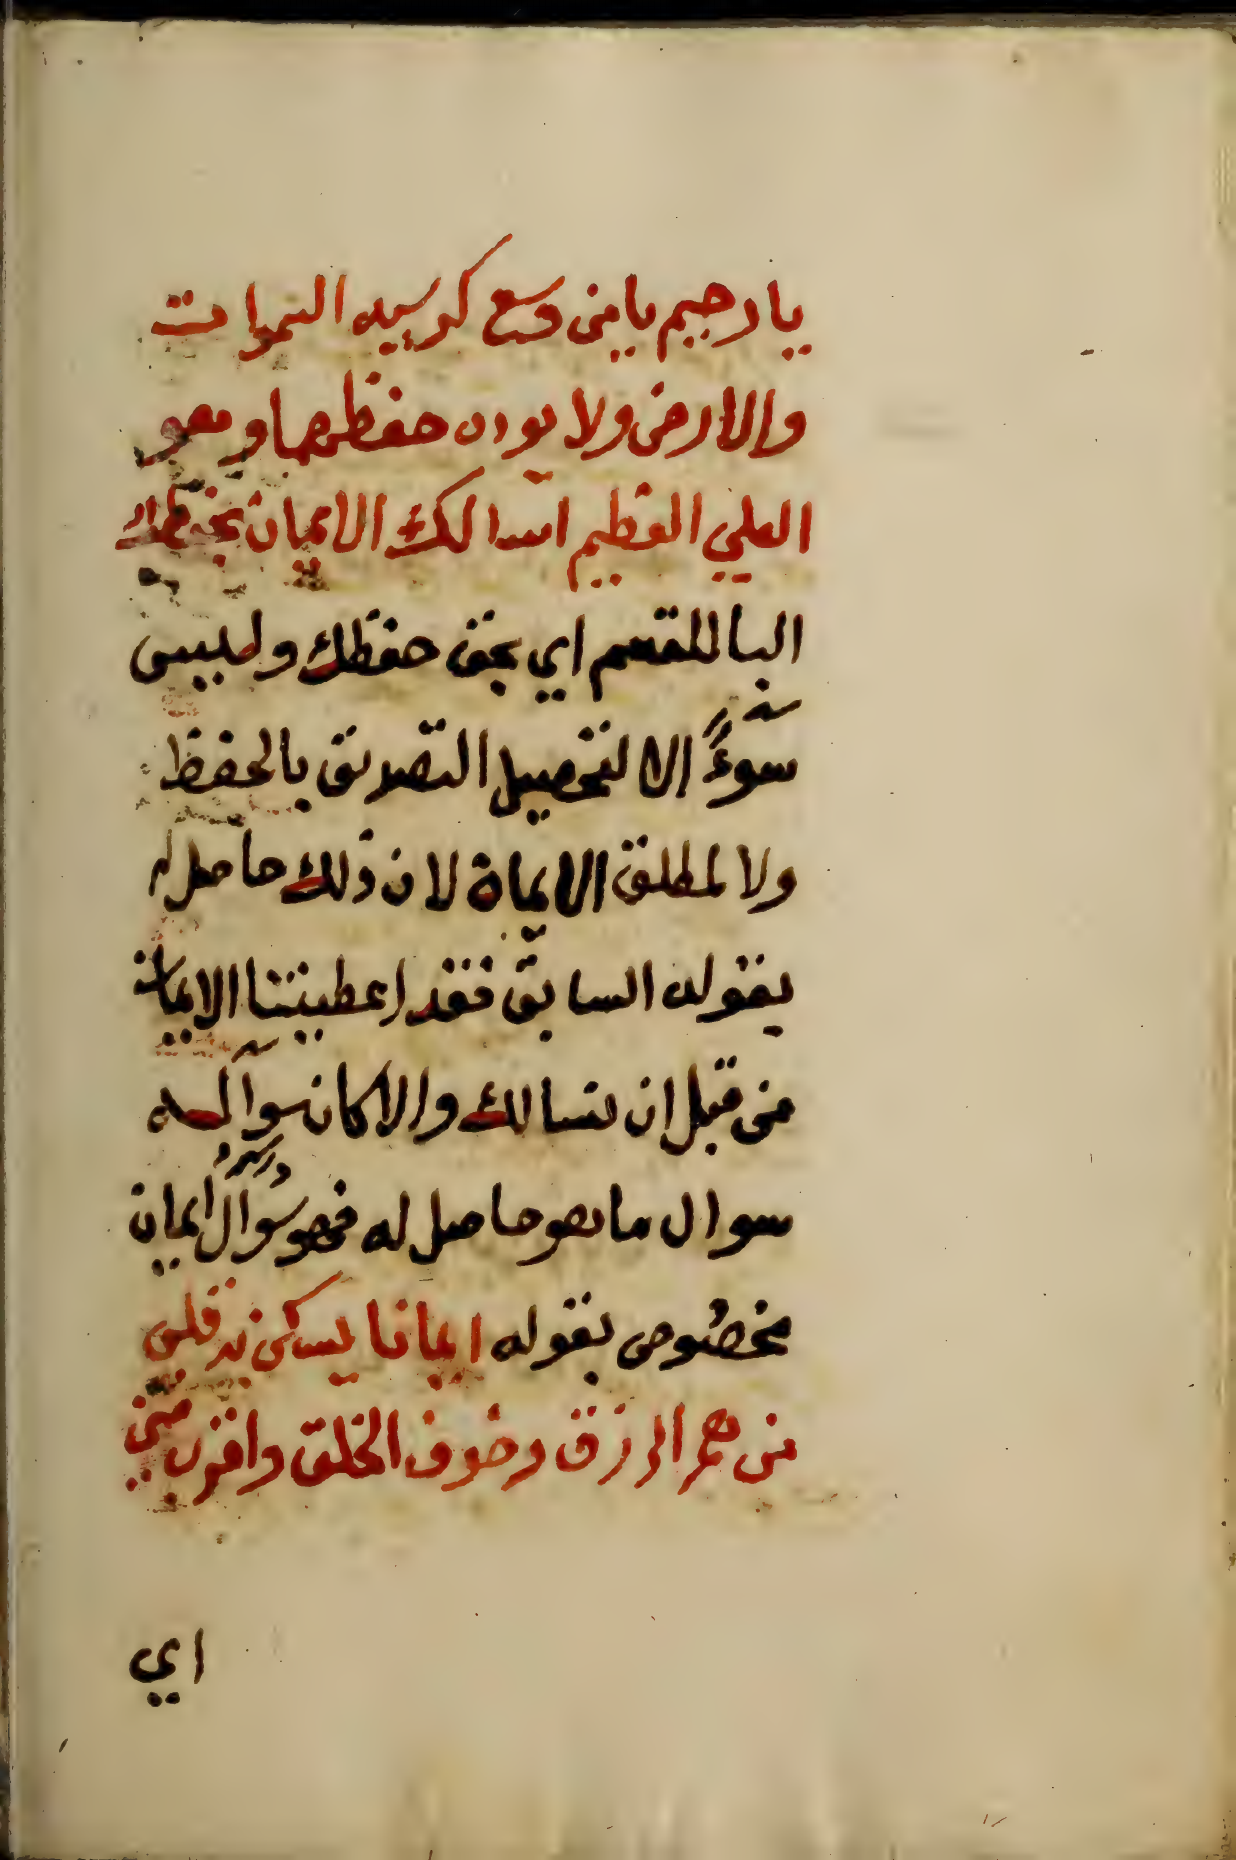 يا رحيم يا من وسع كرسيه السموات
والارض ولا يوده حفظهما وهو
العلي العظيم اسالك الايمان بحفظك
البا للقسم اي بحق حفظك وليس
سوءله الا لتحصيل التصديق بالحفظ
ولا لمطلق الايمان لان ذلك حاصل له
بقوله السابق فقد اعطيتنا الايمان
من قبل ان نسالك والا كان سواله
سوال ما هو حاصل له فهو سوال ايمان
مخصوص بقوله ايمانا يسكن به قلبي
من هم الرزق وخوف الخلق واقرب مني
اي